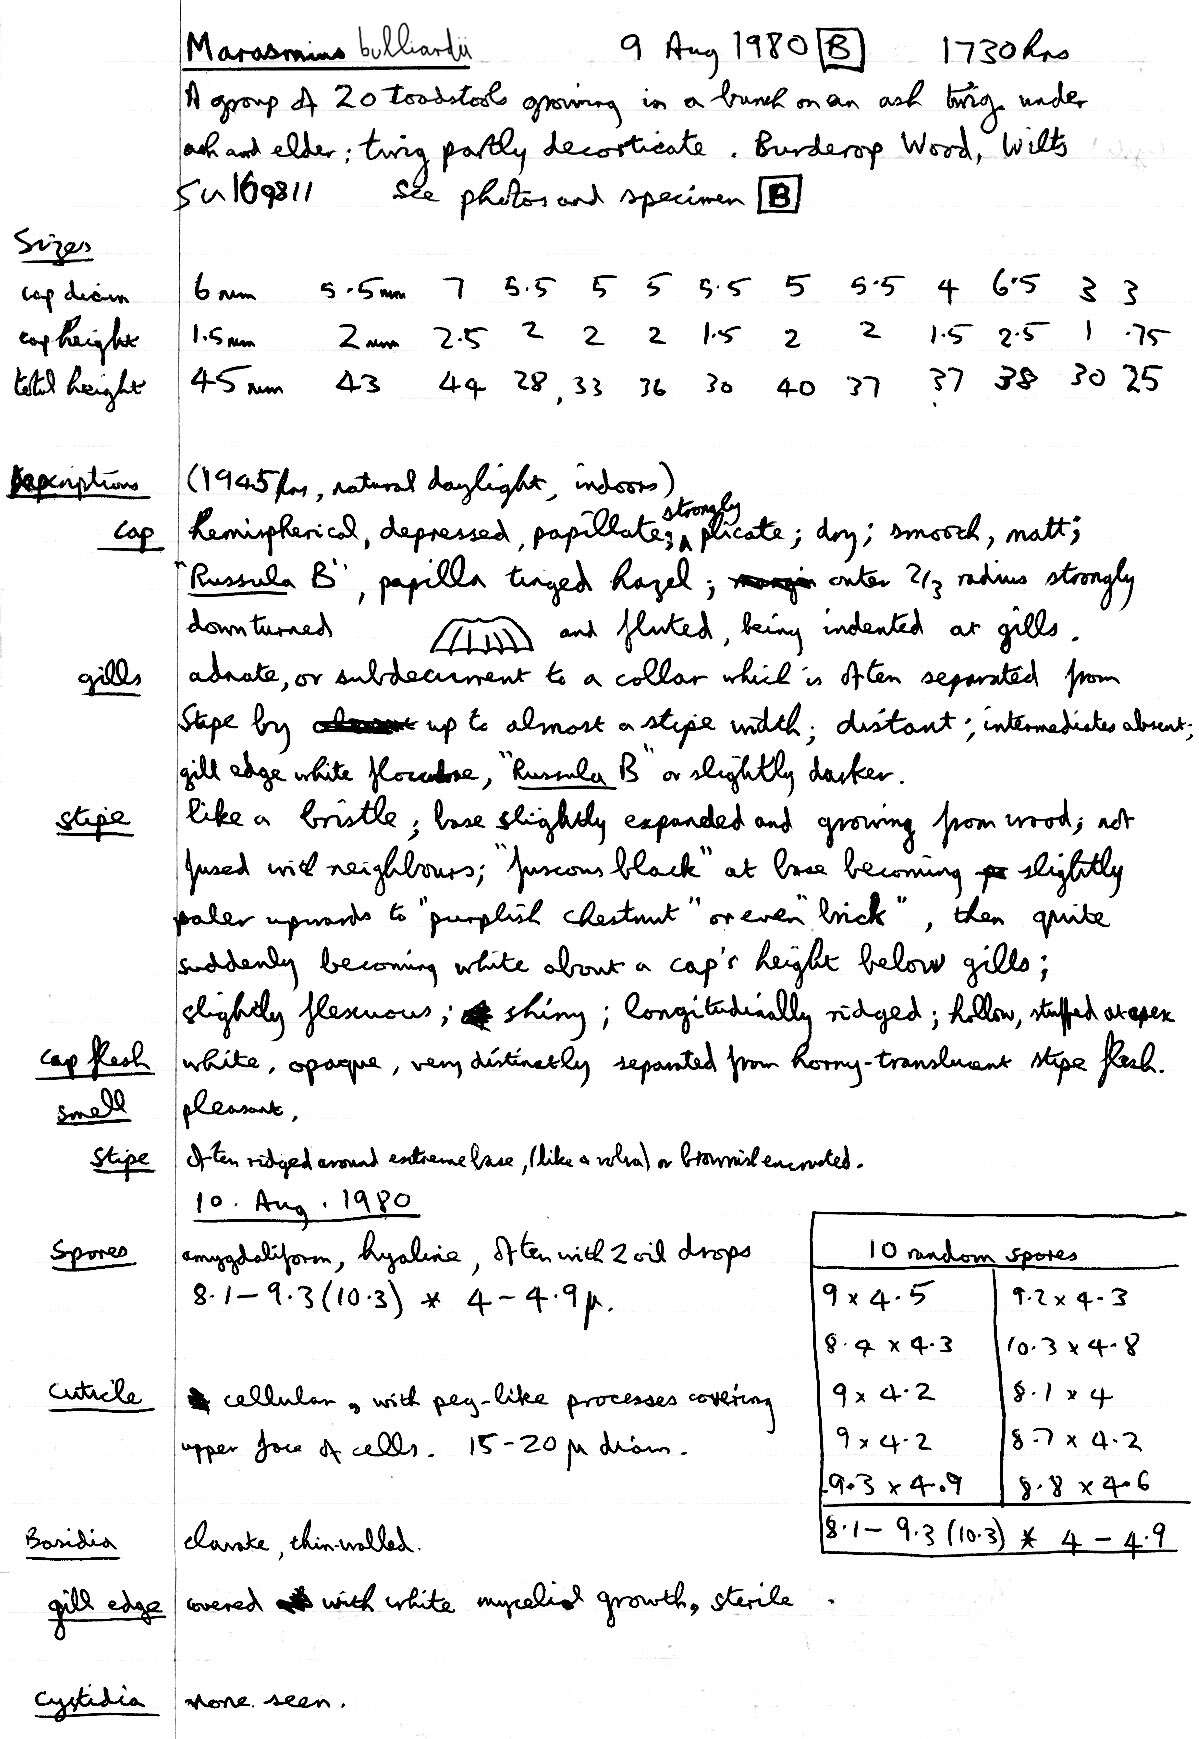 Marasmius bulliardii 9 Aug 1980 B 1730hrs
A group of 20 toadstools growing in a bunch on an ash twig under
ash and elder; twig partly decorticate. Burderop Wood, Wilts
SU169811 See photos and specimen B
Sizes
cap diam 6mm 5.5mm 7 5.5 5 5 5.5 5 5.5 4 6.5 3 3
cap height 1.5mm 2mm 2.5 2 2 2 1.5 2 2 1.5 2.5 1 .75
total height 45mm 43 44 28, 33 36 30 40 37 37 38 30 25
Descriptions (1945hrs, natural daylight, indoors)
cap hemispherical, depressed, papillate; strongly plicate; dry; smooth, matt;
"Russula B", papilla tinged hazel; outer 2/3 radius strongly
downturned and fluted, being indented at gills.
gills adnate, or subdecurrent to a collar which is often separated from
stipe by up to almost a stipe width; distant; intermediates absent;
gill edge white floccose, "Russula B" or slightly darker.
stipe like a bristle; base slightly expanded and growing from wood; not
fused with neighbours; "fuscous black" at base becoming slightly
paler upwards to "purplish chestnut" or even "brick", then quite
suddenly becoming white about a cap's height below gills;
slightly flexuous; shiny; longitudinally ridged; hollow, stuffed at apex
cap flesh white, opaque, very distinctly separated from horny-translucent stipe flesh.
smell pleasant.
stipe often ridged around extreme base, (like a volva) or brownish encrusted.
10. Aug. 1980
Spores amygdaliform, hyaline, often with 2 oil drops
8.1-9.3(10.3) * 4-4.9µ.
10 random spores
9 x 4.5 9.2 x 4.3
8.4 x 4.3 10.3 x 4.8
9 x 4.2 8.1 x 4
9 x 4.2 8.7 x 4.2
9.3 x 4.9 8.8 x 4.6
8.1-9.3(10.3) * 4-4.9
Cuticle cellular, with peg-like processes covering
upper face of cells. 15-20 µ diam.
Basidia clavate, thin-walled.
gill edge covered with white mycelial growth, sterile.
Cystidia none seen.